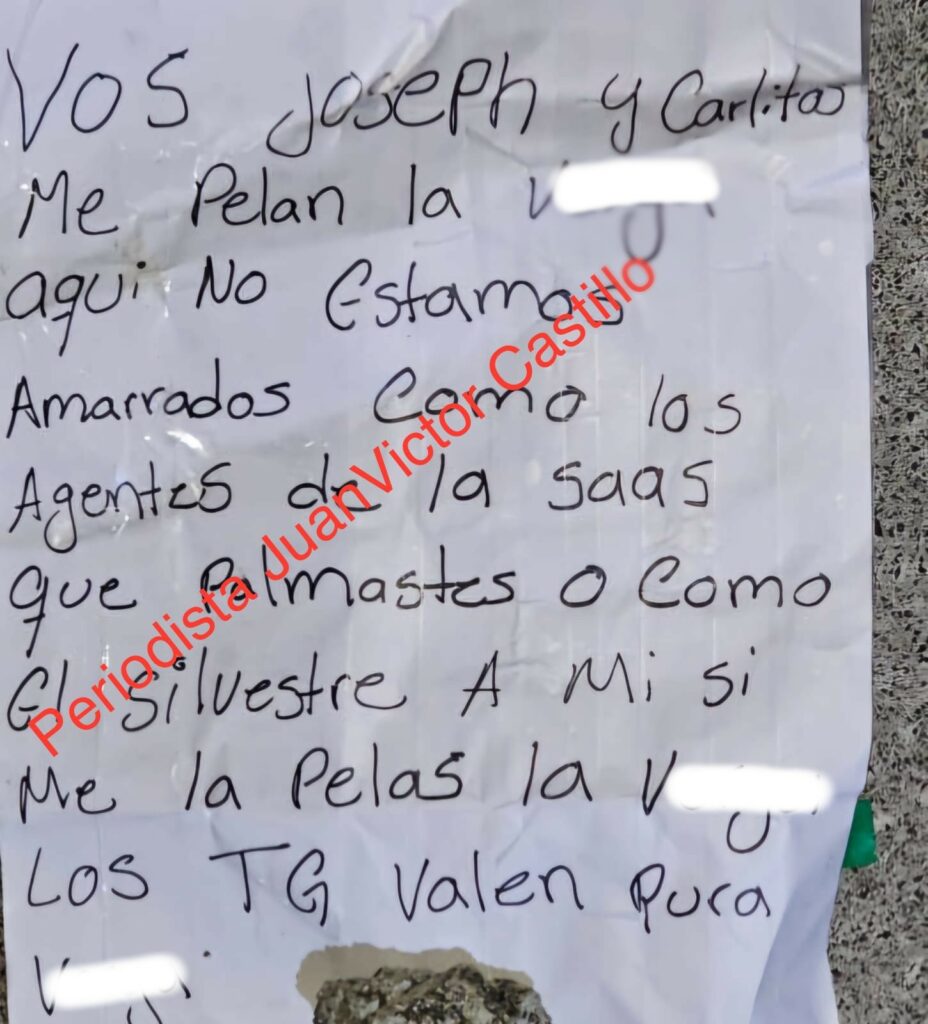 Vos Joseph y Carlitos
Me Pelan la
aqui No Estamos
Amarrados Como los
Agentes de la saas
que Palmastes o Como
El Silvestre A Mi si
Me la Pelas la
Los TG Valen Pura
Periodista JuanVictor Castillo